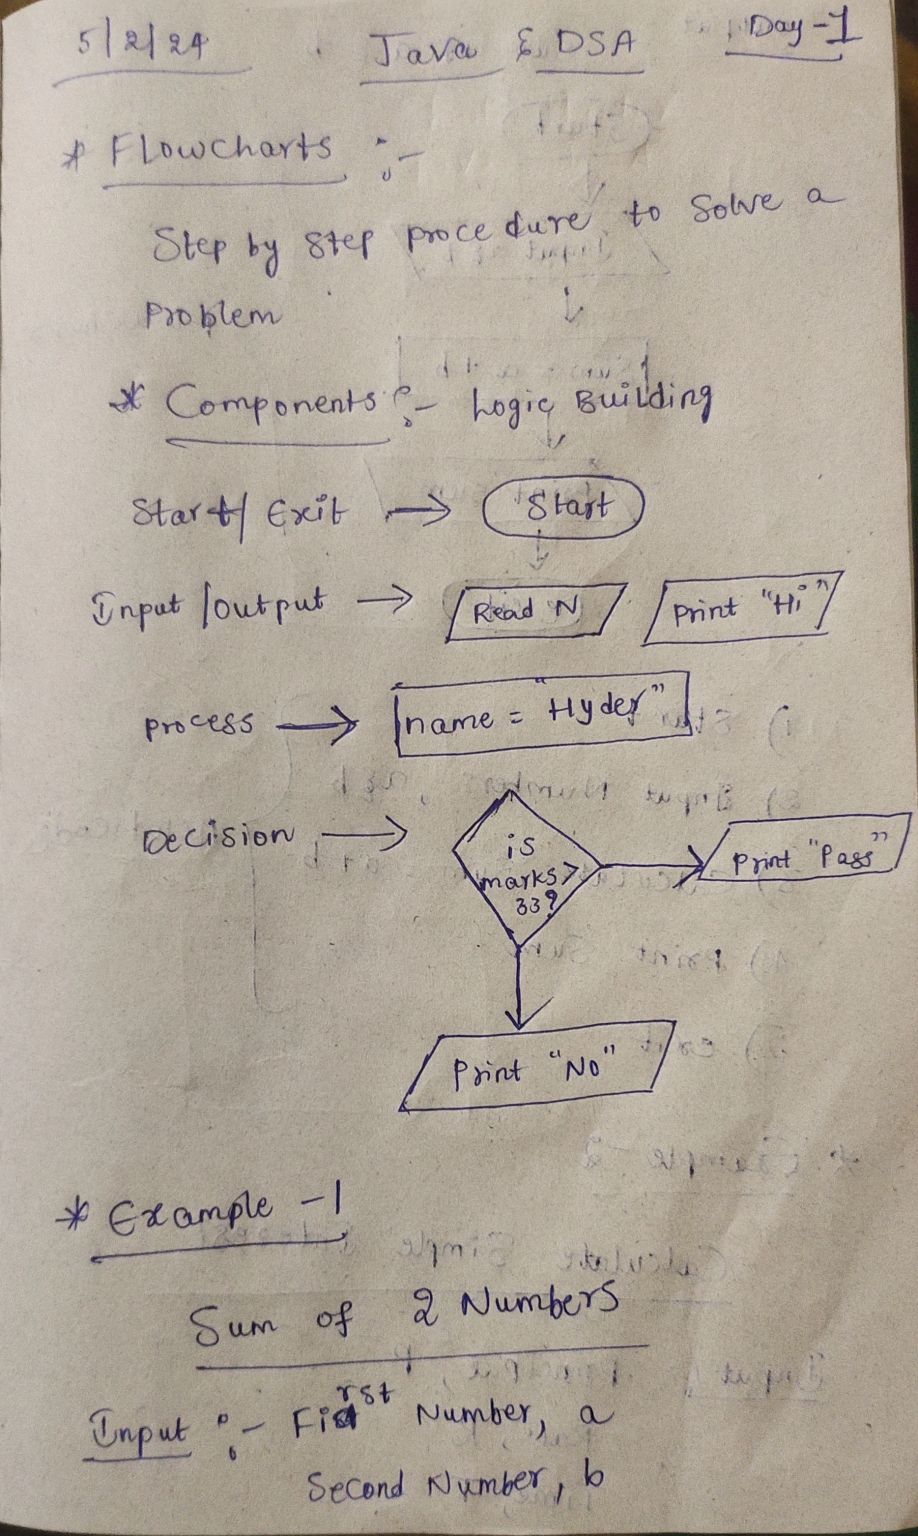 5/2/24 Java & DSA Day-1
* Flowcharts :-
Step by Step procedure to Solve a
Problem
* Components :- Logic Building
Start/ Exit → Start
Input /output → Read N Print "Hi"
process → name = "Hyder"
Decision → is
marks>
33?
Print "Pass"
Print "No"
* Example -1
Sum of 2 Numbers
Input :- First Number, a
Second Number, b